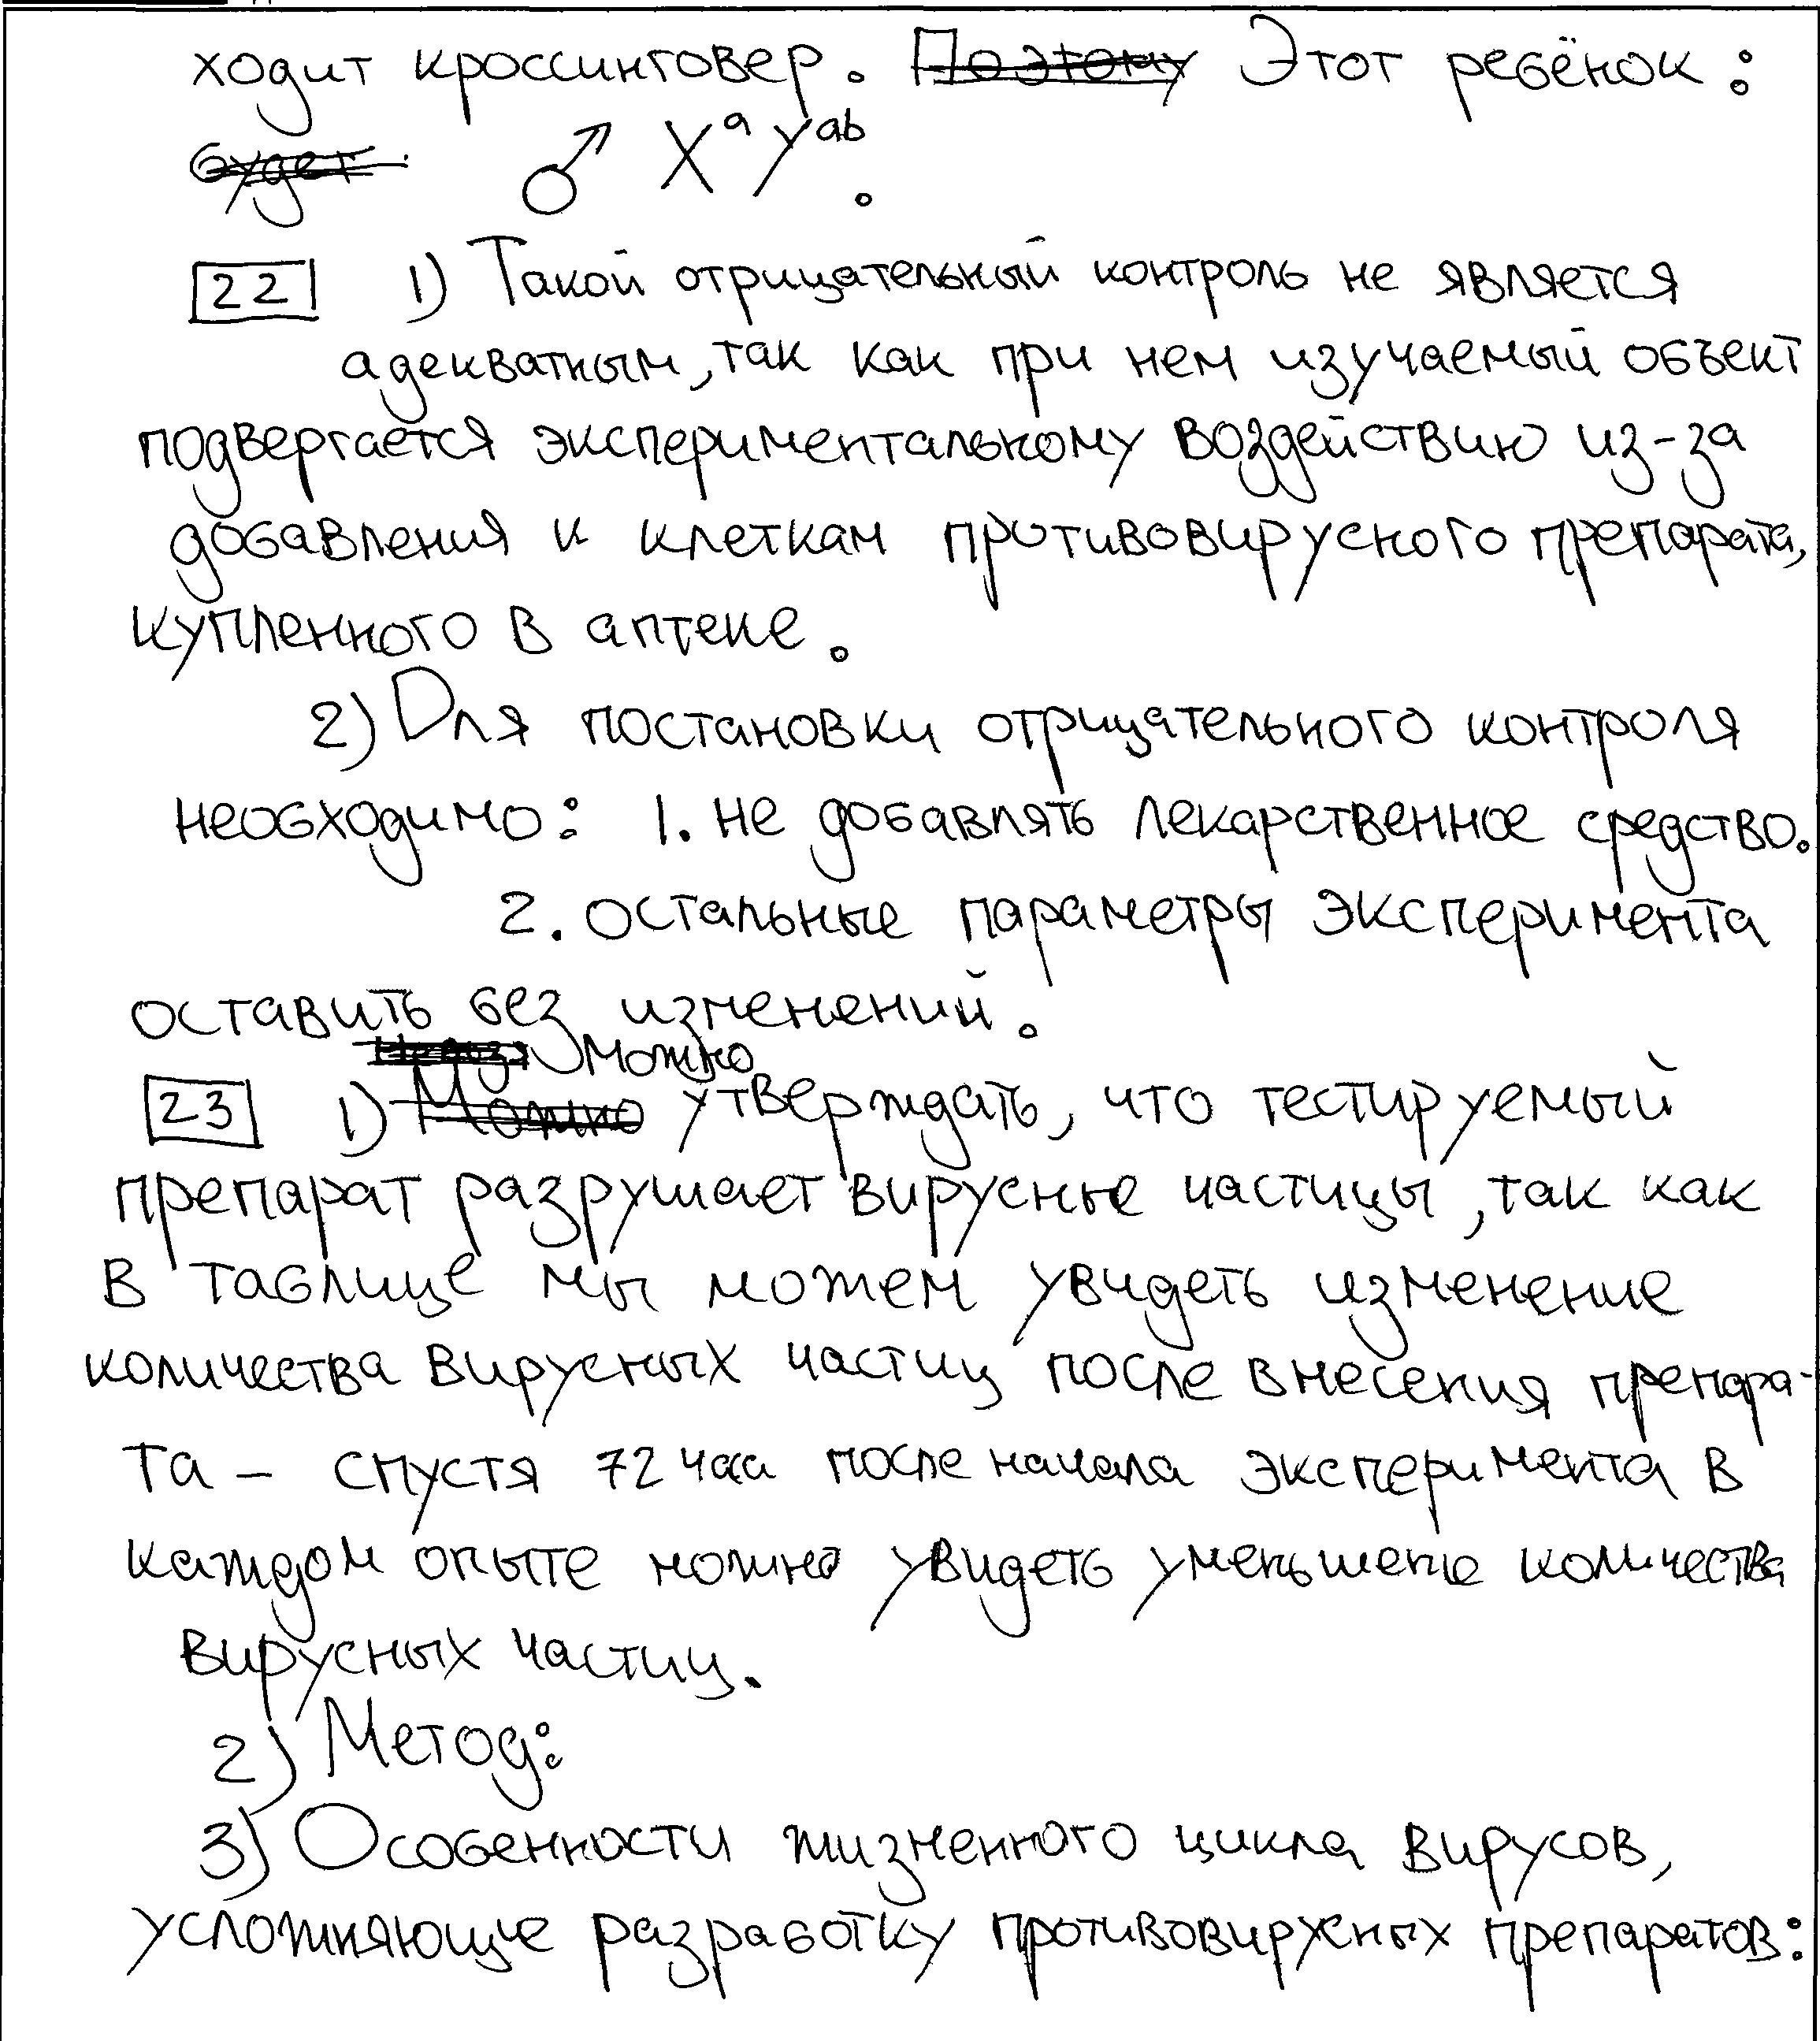 ходит кроссинговер. Поэтому Этот ребёнок:
будет ♂ XᵃYᵃᵇ.
22 1) Такой отрицательный контроль не является
адекватным, так как при нем изучаемый объект
подвергается экспериментальному воздействию из-за
добавления к клеткам противовирусного препарата,
купленного в аптеке.
2) Для постановки отрицательного контроля
необходимо: 1. не добавлять лекарственное средство.
2. остальные параметры эксперимента
оставить без изменений.
можно
23 1) Можно утверждать, что тестируемый
препарат разрушает вирусные частицы, так как
в таблице мы можем увидеть изменение
количества вирусных частиц после внесения препара-
та - спустя 72 часа после начала эксперимента в
каждом опыте можно увидеть уменьшение количества
вирусных частиц.
2) Метод:
3) Особенности жизненного цикла вирусов,
усложняющие разработку противовирусных препаратов: